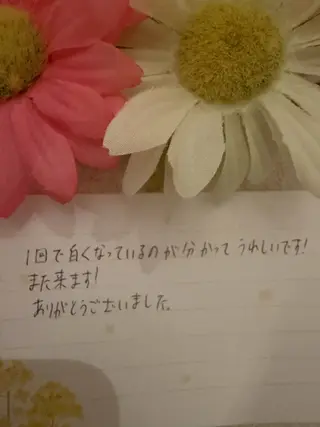 1回で白くなっているのが分かってうれしいです!
また来ます!
ありがとうございました。